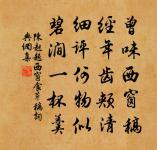 曾味西窗稿
经年齿颊清
细评何物似
碧涧一杯羹
陈起赵西窗食芹稿词
典倜集